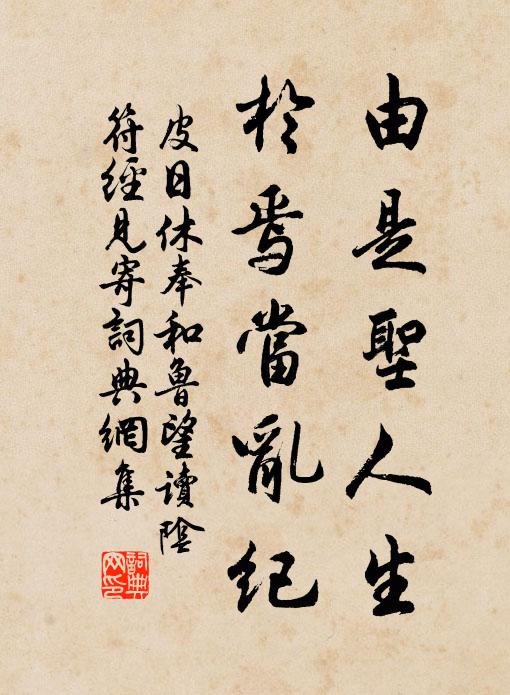 由是聖人生
於焉當亂紀
皮日休奉和魯望讀陰
符經見寄詞典網集
詞典
网印